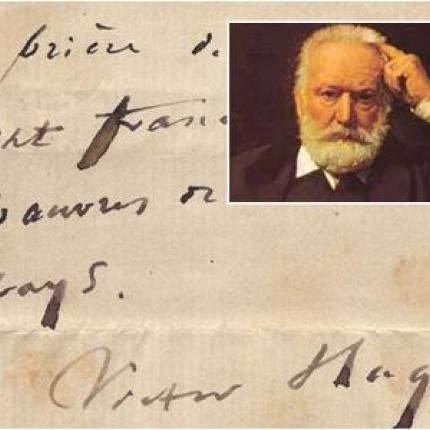 prière d
franc
pauvres de
pays.
Victor Hug